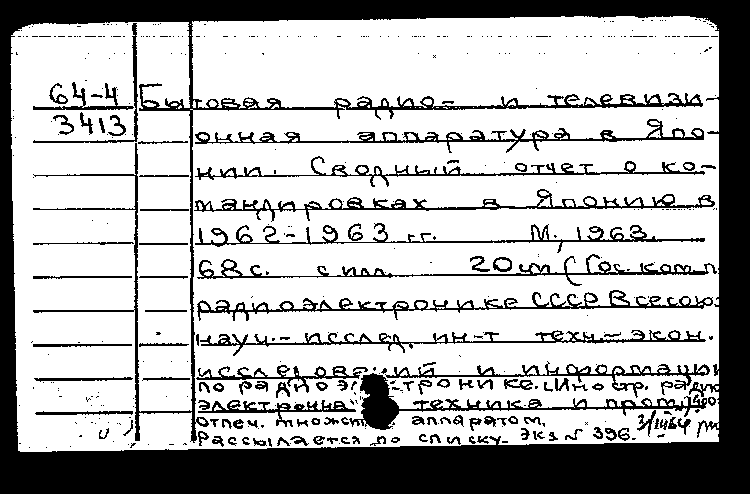 64-4 Бытовая радио- и телевизи-
3413 онная аппаратура в Япо-
нии. Сводный отчет о ко-
мандировках в Японию в
1962-1963 гг. М., 1963.
68 с. с илл. 20 см (Гос. ком. п
радиоэлектронике СССР Всесоюз
науч.- исслед. ин-т техн.- экон.
исследований и информации
по радиоэлектронике. Иностр. радио
электронная техника и пром.)
Отпеч. множит. аппаратом.
Рассылается по списку. Экз № 396.